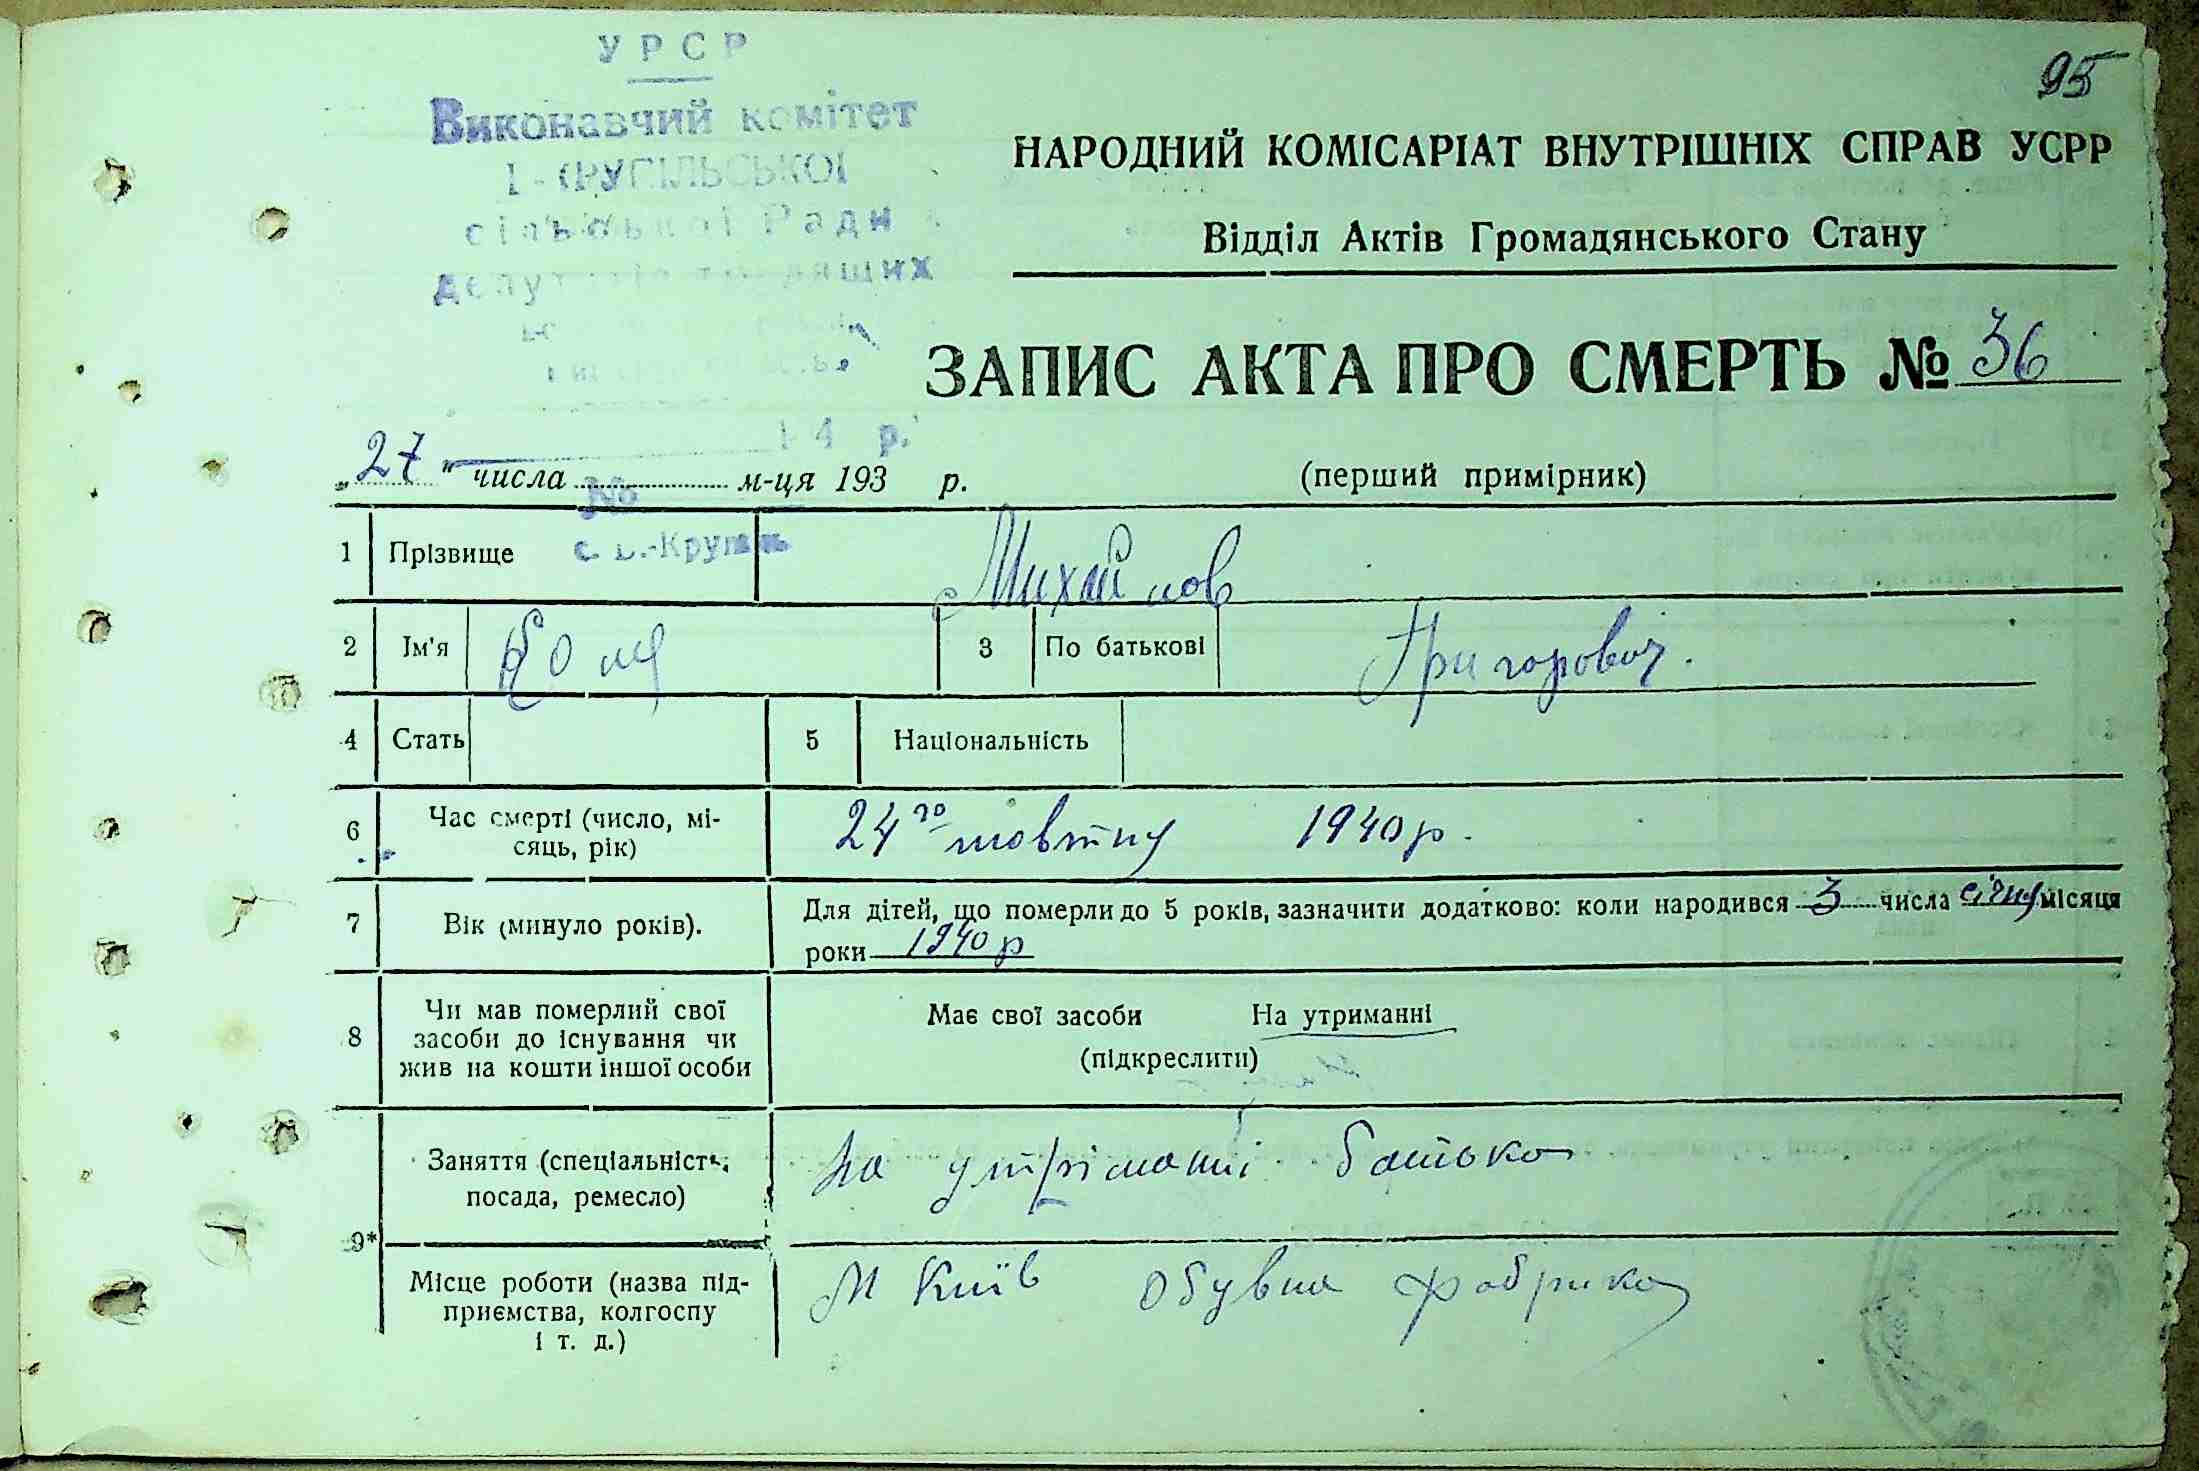 УРСР
95
Виконавчий комітет
сільської Ради
НАРОДНИЙ КОМІСАРІАТ ВНУТРІШНІХ СПРАВ УСРР
Відділ Актів Громадянського Стану
ЗАПИС АКТА ПРО СМЕРТЬ № 36
194 р.
„27" числа м-ця 193 р. (перший примірник)
№
1 Прізвище Михайлов
2 Ім'я Коля 3 По батькові Григорович.
4 Стать 5 Національність
6 Час смерті (число, мі-
сяць, рік) 24го жовтня 1940р.
7 Вік (минуло років). Для дітей, що померли до 5 років, зазначити додатково: коли народився 3 числа січня місяця
роки 1940 р
8 Чи мав померлий свої
засоби до існування чи
жив на кошти іншої особи
Має свої засоби На утриманні
(підкреслити)
9* Заняття (спеціальність,
посада, ремесло) На утріманні батька
Місце роботи (назва під-
приємства, колгоспу
і т. д.) М Київ Обувна фабрика